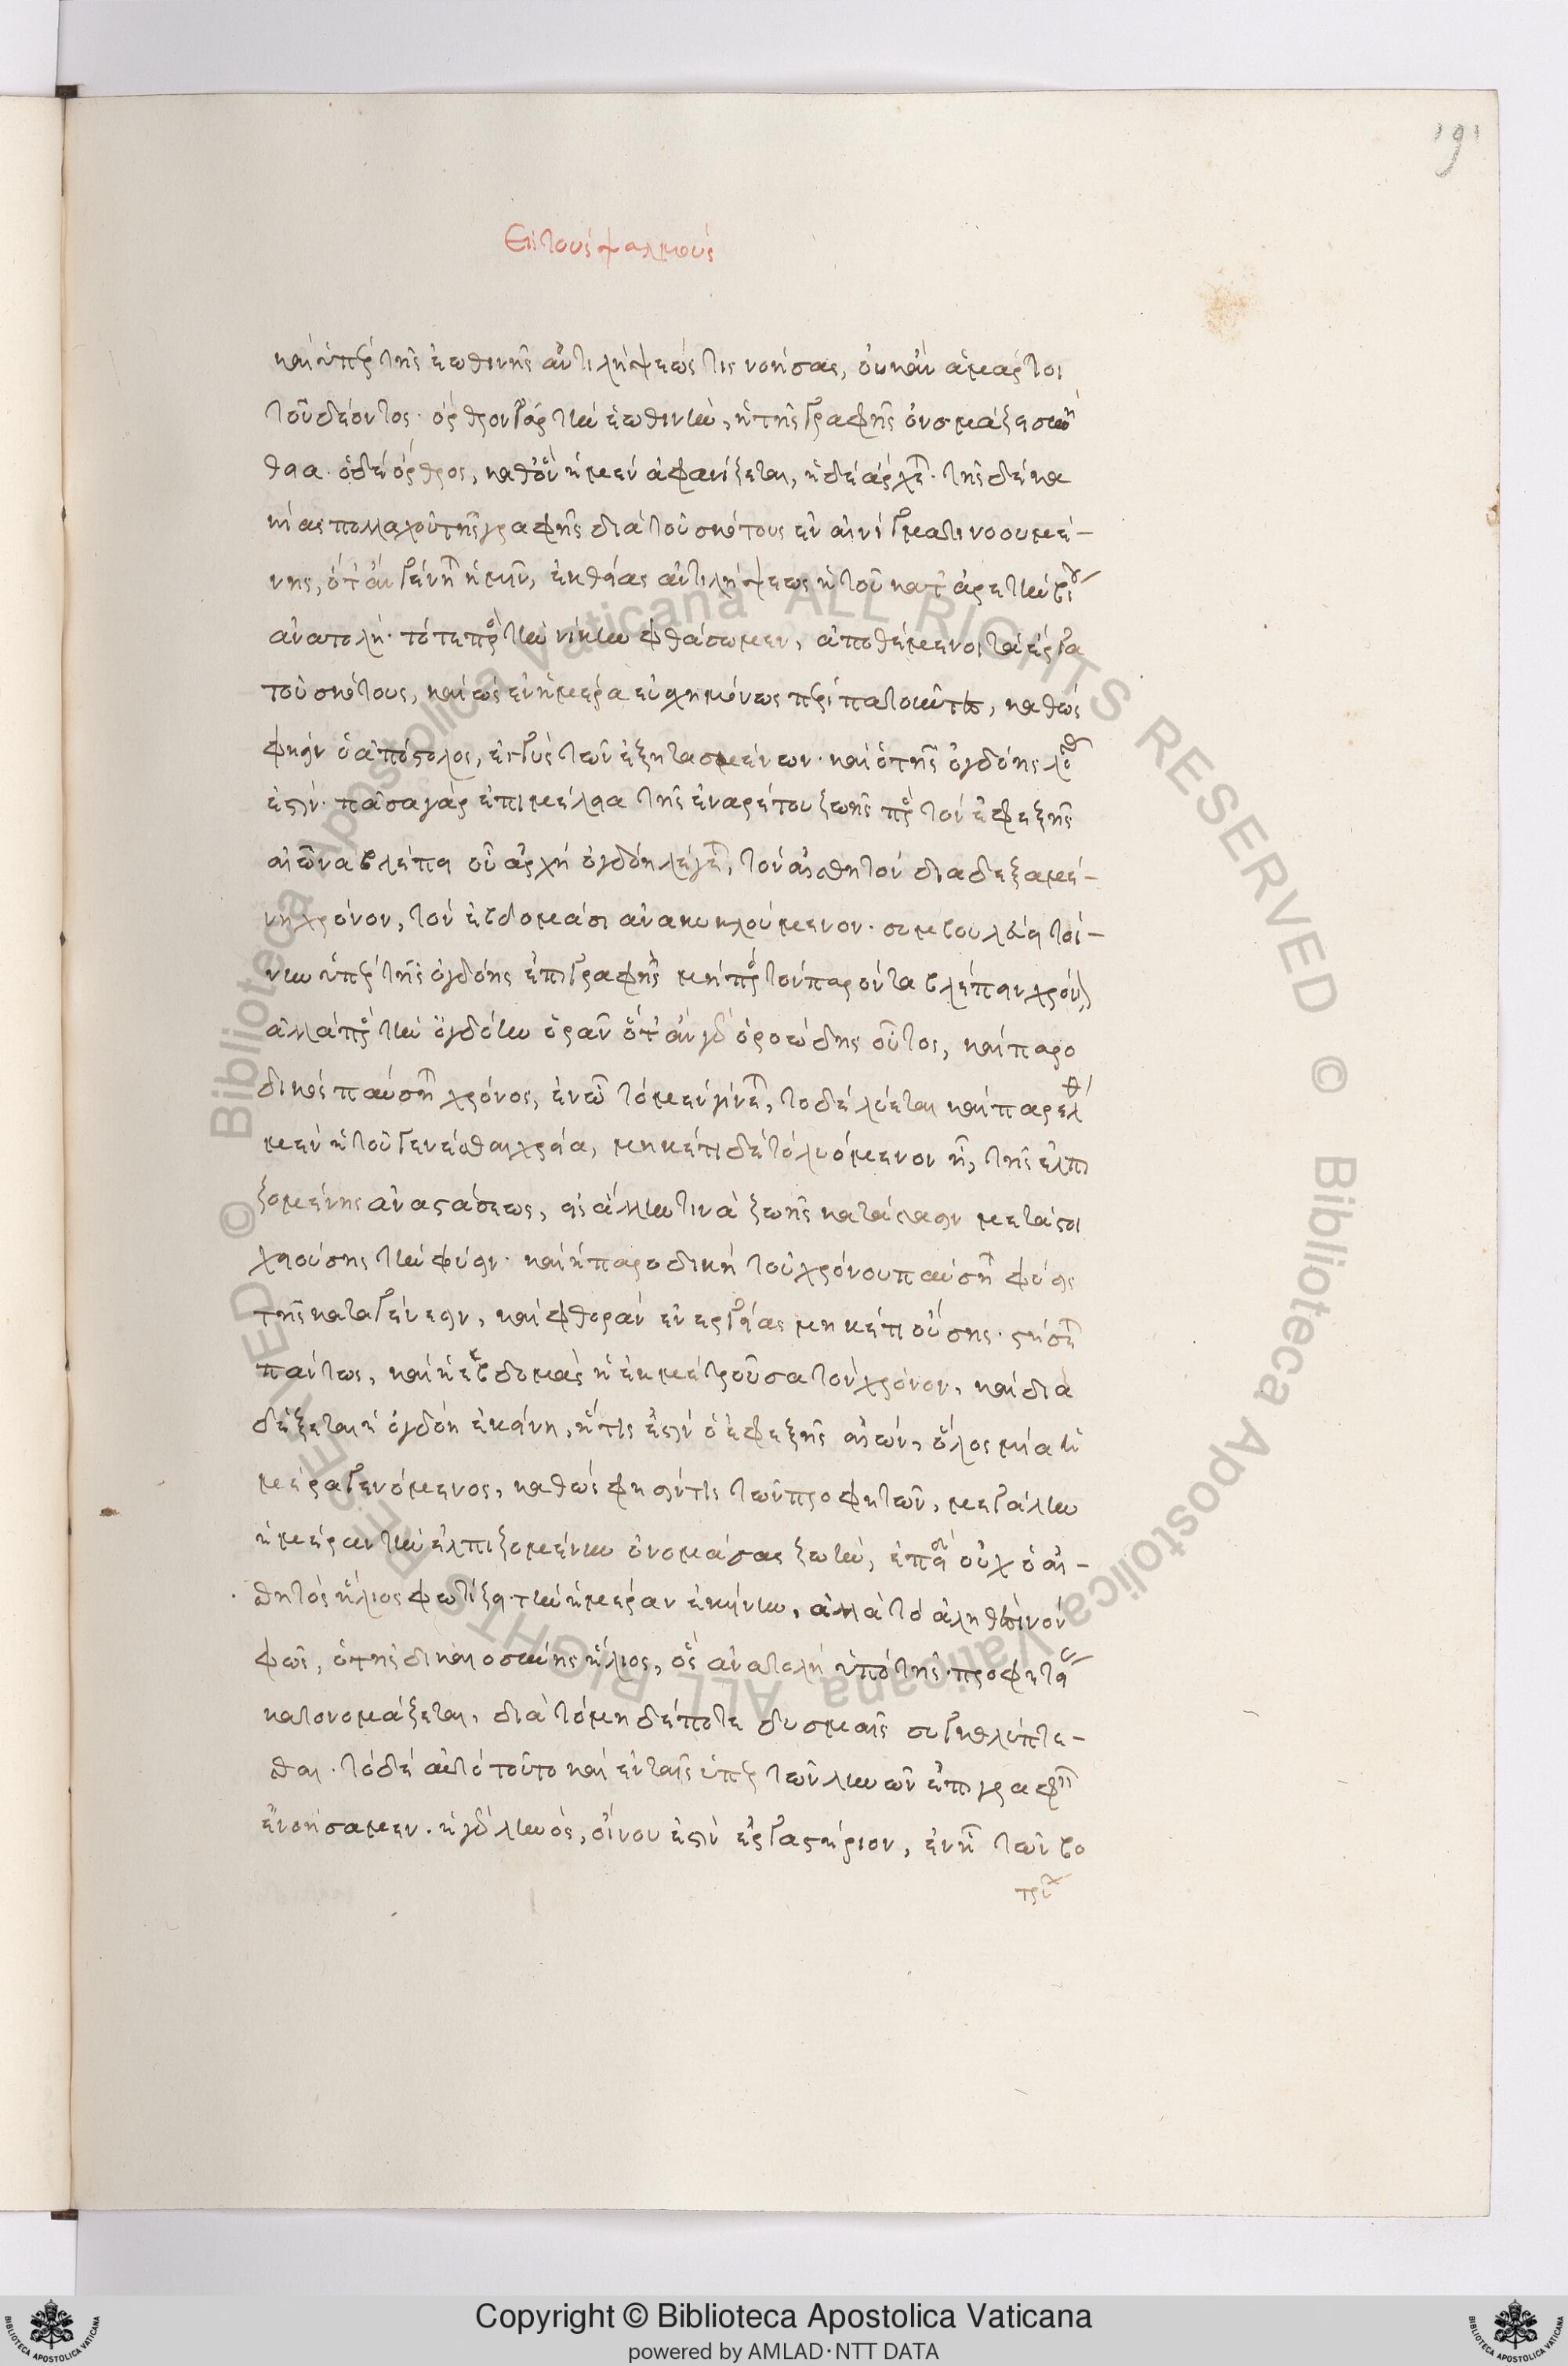 191
Εἰς τοὺς ψαλμούς
καὶ ὑπὲρ τῆς ἑωθινῆς ἀντιλήψεώς τις νοήσας, οὐκ ἂν ἁμάρτοι
τοῦ δέοντος· ὄρθρον γὰρ τὴν ἑωθινὴν, ἡ τῆς γραφῆς ὀνομάζει συνή
θεια· ὁ δὲ ὄρθρος, καθ' ὃν ἡ μὲν ἀφανίζεται, ἡ δὲ ἄρχεται· τῆς δὲ κα
κίας πολλαχοῦ τῆς γραφῆς διὰ τοῦ σκότους ἐν αἰνίγματι νοουμέ-
νης, ὅτ' ἂν γένηται ἡμῖν, ἐκ θείας ἀντιλήψεως ἡ τοῦ κατ' ἀρετὴν βίου
ἀνατολή· τότε πρὸς τὴν νίκην φθάσωμεν, ἀποθέμενοι τὰ ἔργα
τοῦ σκότους, καὶ ὡς ἐν ἡμέρα εὐσχημόνως περιπατοῦντες, καθὼς
φησὶν ὁ ἀπόστολος, ἐγγὺς τῶν ἐξητασμένων· καὶ ὁ τῆς ὀγδόης λόγος
ἐστίν· πᾶσα γὰρ ἐπιμέλεια τῆς ἐναρέτου ζωῆς πρὸς τὸν ἐφεξῆς
αἰῶνα βλέπει οὗ ἀρχὴ ὀγδόη λέγεται, τὸν αἰσθητὸν διαδεξαμέ-
νη χρόνον, τὸν ἑβδομάσι ἀνακυκλούμενον· συμβουλεύει τοί-
νυν ὑπὲρ τῆς ὀγδόης ἐπιγραφῆς μὴ πρὸς τὸν παρόντα βλέπειν χρόνον
ἀλλὰ πρὸς τὴν ὀγδόην ὁρᾶν ὅτ' ἂν γὰρ ὁ ροώδης οὗτος, καὶ παρο
δικὸς παύσηται χρόνος, ἐν ᾧ τὸ μὲν γίνεται, τὸ δὲ λύεται καὶ παρέλθῃ
μὲν ἡ τοῦ γενέσθαι χρεία, μηκέτι δὲ τὸ λυόμενον ᾖ, τῆς ἐλπι
ζομένης ἀναστάσεως, εἰς ἄλλην τινὰ ζωῆς κατάστασιν μεταστοι
χειούσης τὴν φύσιν· καὶ ἡ παροδικὴ τοῦ χρόνου παύσηται φύσις
τῆς κατὰ γένεσιν, καὶ φθορὰν ἐνεργείας μηκέτι οὔσης· στήσεται
πάντως, καὶ ἡ ἑβδομὰς ἡ ἐκμετροῦσα τὸν χρόνον, καὶ δια
δέξεται ἡ ὀγδόη ἐκείνη, ἥτις ἐστὶν ὁ ἐφεξῆς αἰών, ὅλος μία ἡ
μέρα γενόμενος, καθώς φησίν τις τῶν προφητῶν, μεγάλην
ἡμέραν τὴν ἐλπιζομένην ὀνομάσας ζωὴν, ἐπειδὴ οὐχ ὁ αἰ-
σθητὸς ἥλιος φωτίζει τὴν ἡμέραν ἐκείνην, ἀλλὰ τὸ ἀληθινὸν
φῶς, ὁ τῆς δικαιοσύνης ἥλιος, ὃς ἀνατολὴ ὑπὸ τῆς προφητείας
κατονομάζεται, διὰ τὸ μηδέποτε δυσμαῖς συγκαλύπτε-
σθαι· τὸ δὲ αὐτὸ τοῦτο καὶ ἐν ταῖς ὑπὲρ τῶν ληνῶν ἐπιγραφαῖς
ἐνοήσαμεν· ἡ γὰρ ληνός, οἴνου ἐστὶν ἐργαστήριον, ἐν ᾗ τῶν βο
τρύων
Copyright © Biblioteca Apostolica Vaticana
powered by AMLAD·NTT DATA